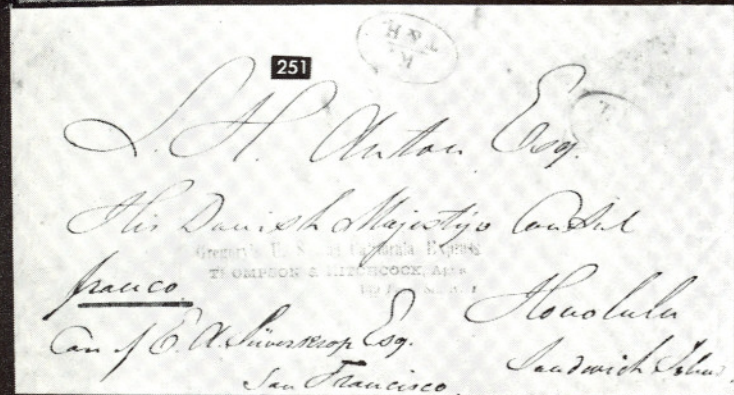 251
T & H
L. H. Anton Esq.
His Danish Majestys Consul
Gregory's U. S. and California Express
THOMPSON & HITCHCOCK, Agts
franco.
Honolulu
Care of E. A. Suverkrop Esq.
Sandwich Island
San Francisco.